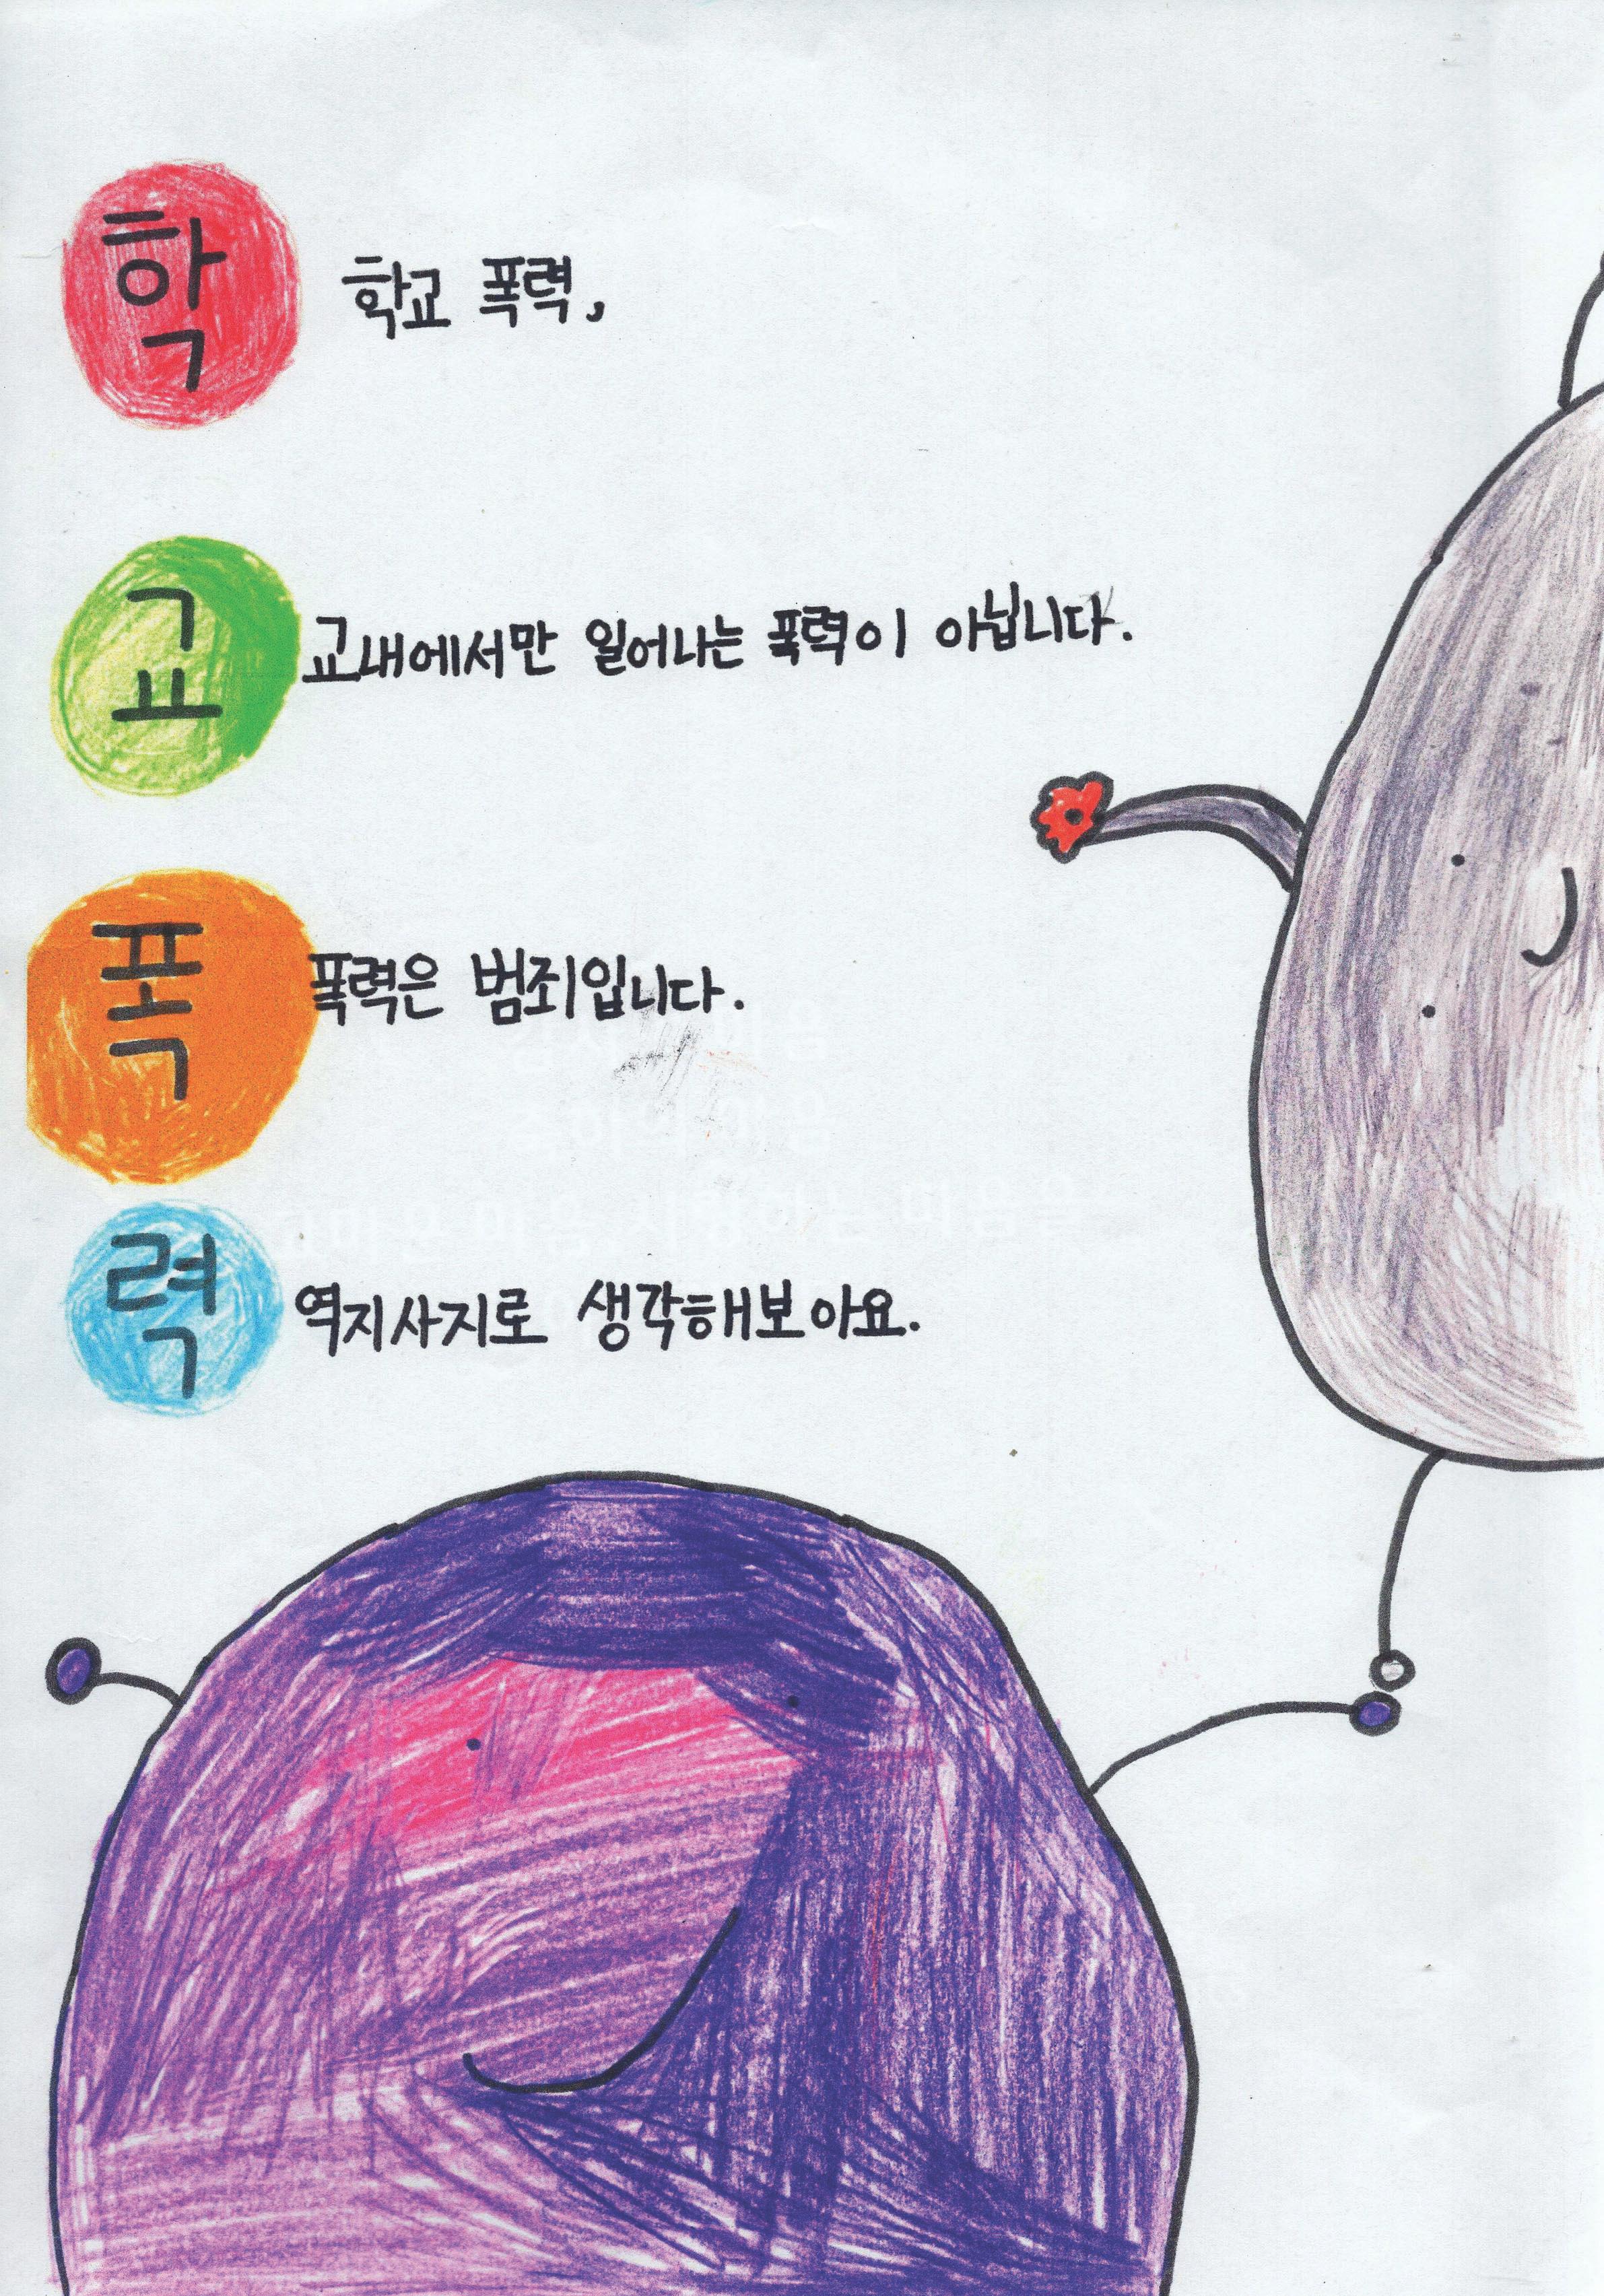 학 학교 폭력,
교 교내에서만 일어나는 폭력이 아닙니다.
폭 폭력은 범죄입니다.
력 역지사지로 생각해보아요.